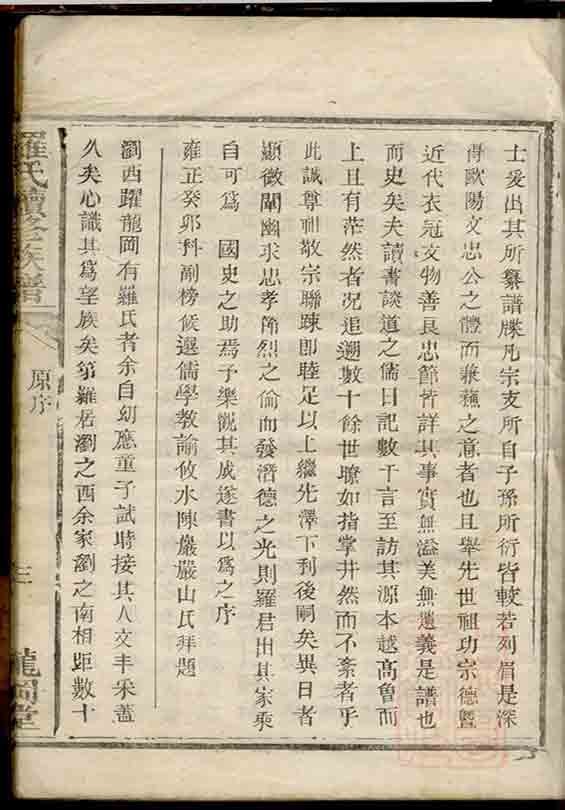 士爰出其所纂譜牒凡宗支所自子孫所衍皆較若列眉是深
得歐陽文忠公之體而兼蘇之意者也且舉先世祖功宗德曁
近代衣冠文物善良忠節皆詳其事實無溢美無遺義是譜也
而史矣夫讀書談道之儒日記數千言至訪其源本越高曾而
上且有茫然者況追遡數十餘世瞭如指掌井然而不紊者乎
此誠尊祖敬宗聯踈即睦足以上繼先澤下列後嗣矣異日者
顯微闡幽求忠孝節烈之倫而發潛德之光則羅君出其家乘
自可爲 國史之助焉予樂觀其成遂書以爲之序
雍正癸卯科副榜候選儒學教諭攸水陳巖嚴山氏拜題
瀏西躍龍岡有羅氏者余自幼應童子試時接其人文丰采蓋
久矣心識其爲望族矣第羅居瀏之西余家瀏之南相距數十
羅氏續修族譜
原序
三
龍岡堂